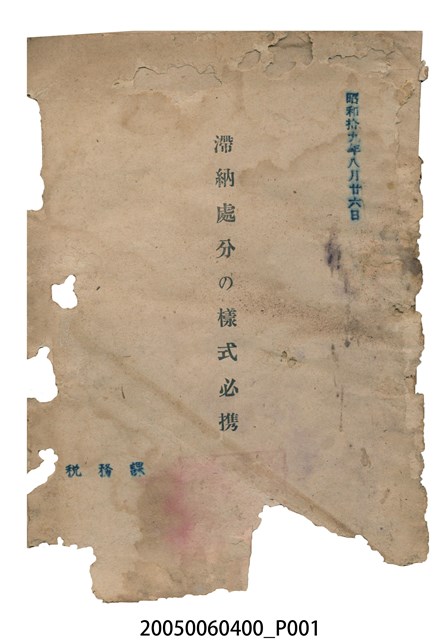 昭和拾九年八月廿六日
滯納處分の樣式必携
税務課
20050060400_P001